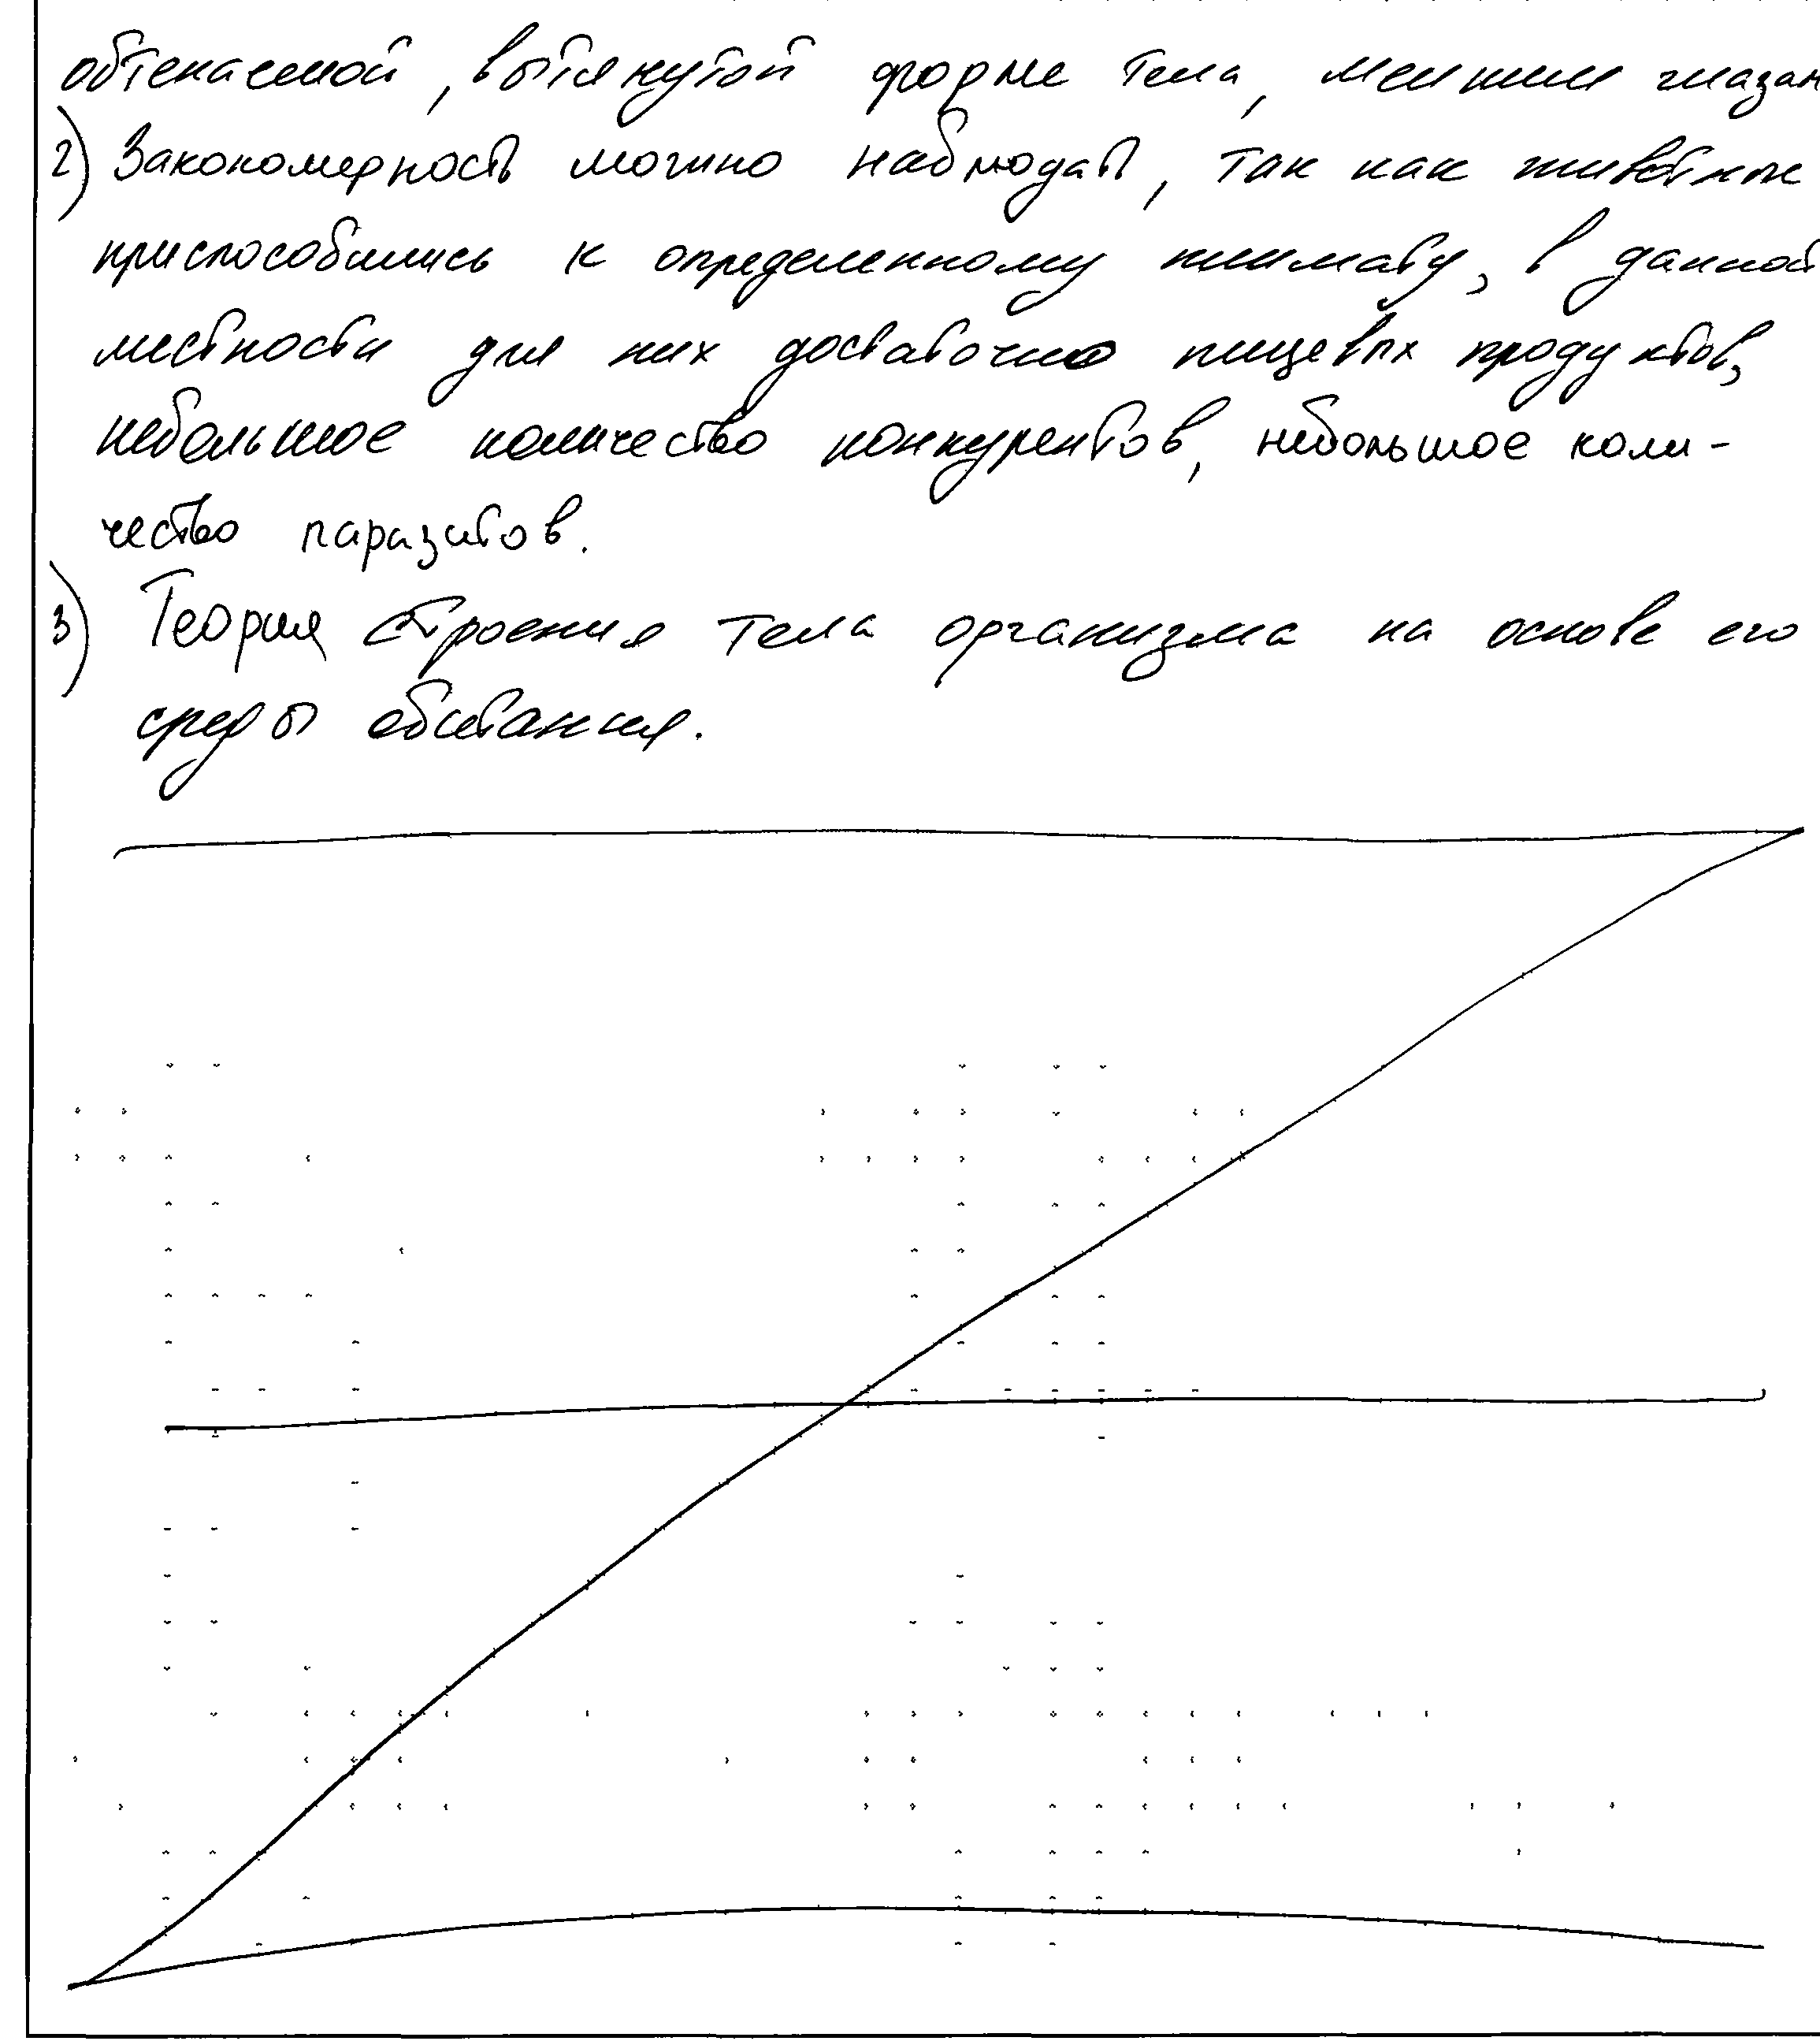 обтекаемой, вытянутой форме тела, меншим глазам
2) Закономерность можно наблюдать, так как животные
приспособились к определенному климату, в данной
местности для них достаточно пищевых продуктов,
небольшое количество конкурентов, небольшое коли-
чество паразитов.
3) Теория строения тела организма на основе его
среды обитания.